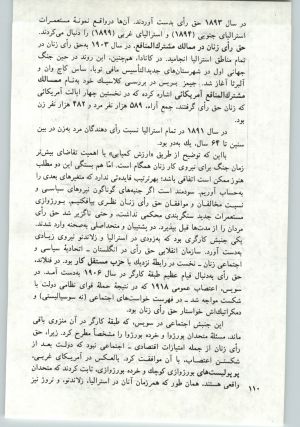 در سال ۱۸۹۳ حق رأی بدست آوردند. آن‌ها درواقع نمونهٔ مستعمرات
استرالیای جنوبی (۱۸۹۴) و استرالیای غربی (۱۸۹۹) را دنبال می‌کردند.
حق رأی زنان در ممالک مشترک‌المنافع، در سال ۱۹۰۳ به‌حق رأی زنان در
تمام مناطق استرالیا انجامید. در کانادا، هم‌چنین، این روند در حین جنگ
جهانی اول در شهرستان‌های جدیدالتأسیس مافی توبا، ساس کاچ وان و
آلبرتا آغاز شد. جیمز بریس در بررسی کلاسیک خود به‌نام ممالک
مشترک‌المنافع آمریکائی اشاره کرده که در نخستین چهار ایالت آمریکائی
که زنان حق رأی گرفتند، جمع آراء، ۵۸۹ هزار نفر مرد و ۴۸۷ هزار نفر زن
بود.
در سال ۱۸۹۱ در تمام استرالیا نسبت رأی دهندگان مرد به‌زن در بین
سنین تا ۶۴ سال، یک به‌دو بود.
بااین که توضیح از طریق «ارزش کمیابی» با اهمیت تقاضای بیش‌تر
زمان جنگ برای نیروی کار زنان همگام است. اما هم بستگی این دو مطلب
هنوز ممکن است اتفاقی باشد؛ بهرترتیب فایده‌ئی ندارد که متغیرهای بعدی را
به‌حساب آوریم. سودمند است اگر جنبه‌های گوناگون نیروهای سیاسی و
نسبت مخالفان و موافقان حق رأی زنان نظری بیافکنیم. بورژوازی
مستعمرات جدید سنگربندی محکمی نداشت، و حتی ناگزیر شد حق رأی
مردان را از مدت‌ها قبل بپذیرد. دو پشتیبان و متحد‌اصلی به‌صحنه وارد شدند.
یکی جنبش کارگری بود که به‌زودی در استرالیا و زلاندنو نیروی زیادی
به‌دست آورد. سازمان انقلابی حق رأی در انگلستان ــ اتحادیهٔ سیاسی و
اجتماعی زنان ــ نخست در رابطهٔ نزدیک با حزب مستقل کار بود. در فنلاند،
حق رأی به‌دنبال قیام عظیم طبقهٔ کارگر در سال ۱۹۰۶ به‌دست آمد. در
سویس، اعتصاب عمومی ۱۹۱۸ که در نتیجهٔ حملهٔ قوای نظامی دولت با
شکست مواجه شد ــ در فهرست خواست‌های اجتماعی (نه سوسیالیستی) و
دمکراتیک‌اش خواستار حق رأی زنان بود.
این جنبش اجتماعی در سویس، که طبقهٔ کارگر در آن منزوی باقی
ماند، مسئلهٔ متحدان بورژوا و خرده بورژوا را مشخصاً مطرح کرد. زیرا، حق
رأی زنان از جمله امتیازات اقتصادی ــ اجتماعی نبود که دولت بعد از
شکستن اعتصاب، با آن موافقت کرد. بالعکس در آمریکای غربی،
پوپولیست‌های بورژوازی کوچک و خرده بورژوازی، ثابت کردند که متحدان
واقعی هستند. همان طور که همرزمان آنان در استرالیا، زلاندنو، و نروژ نیز
۱۱۰